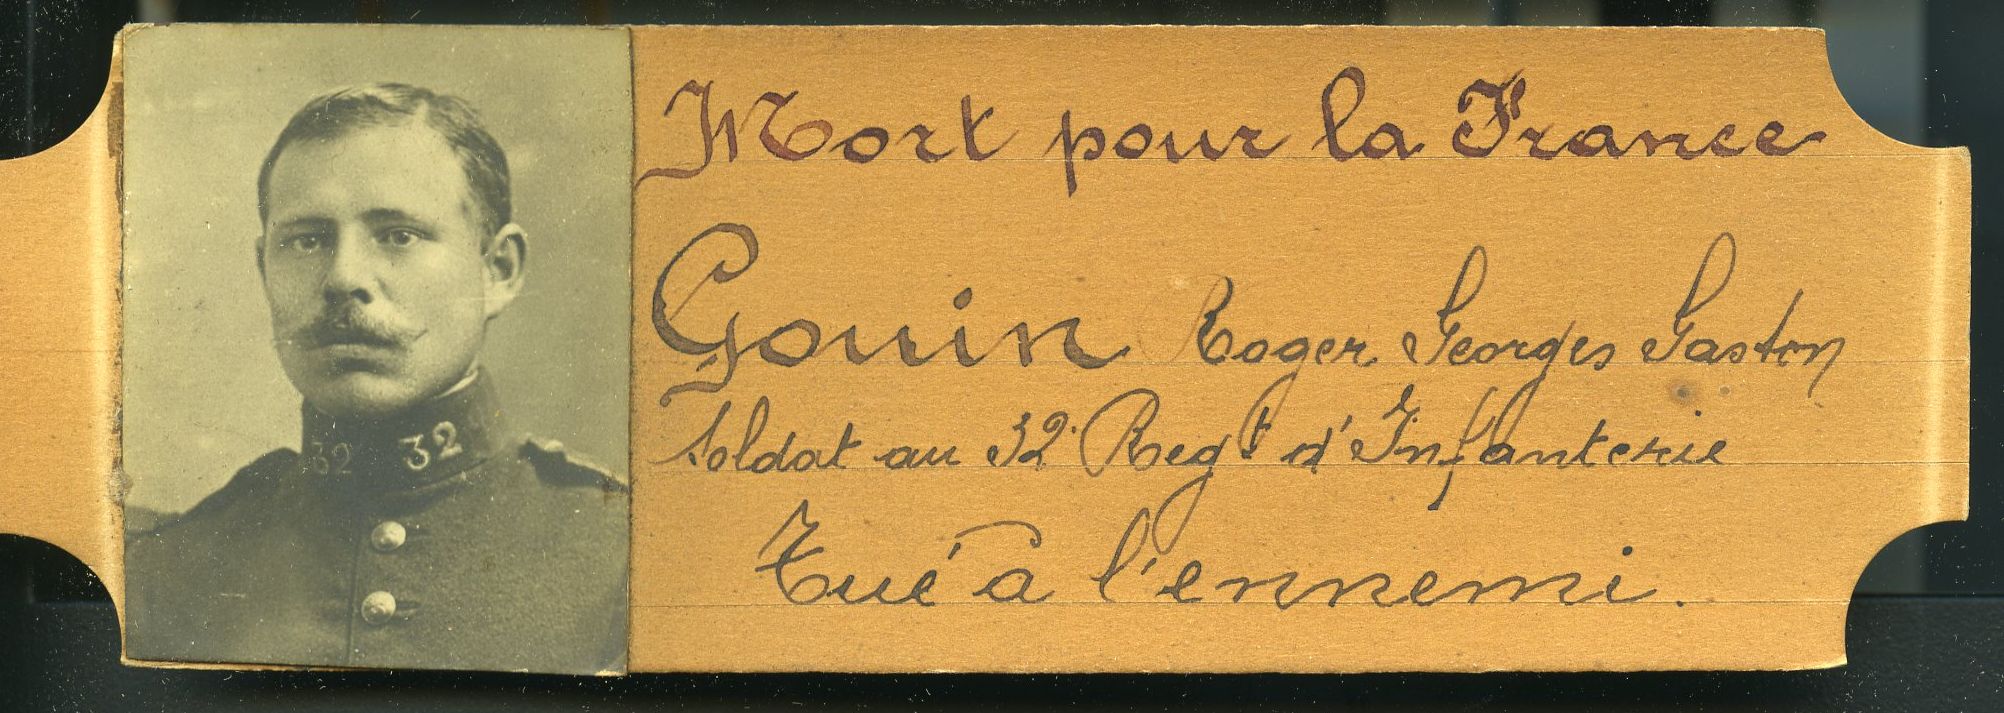 32 32
Mort pour la France
Gouin Roger Georges Gaston
Soldat au 32e Regt d'Infanterie
Tué à l'ennemi.